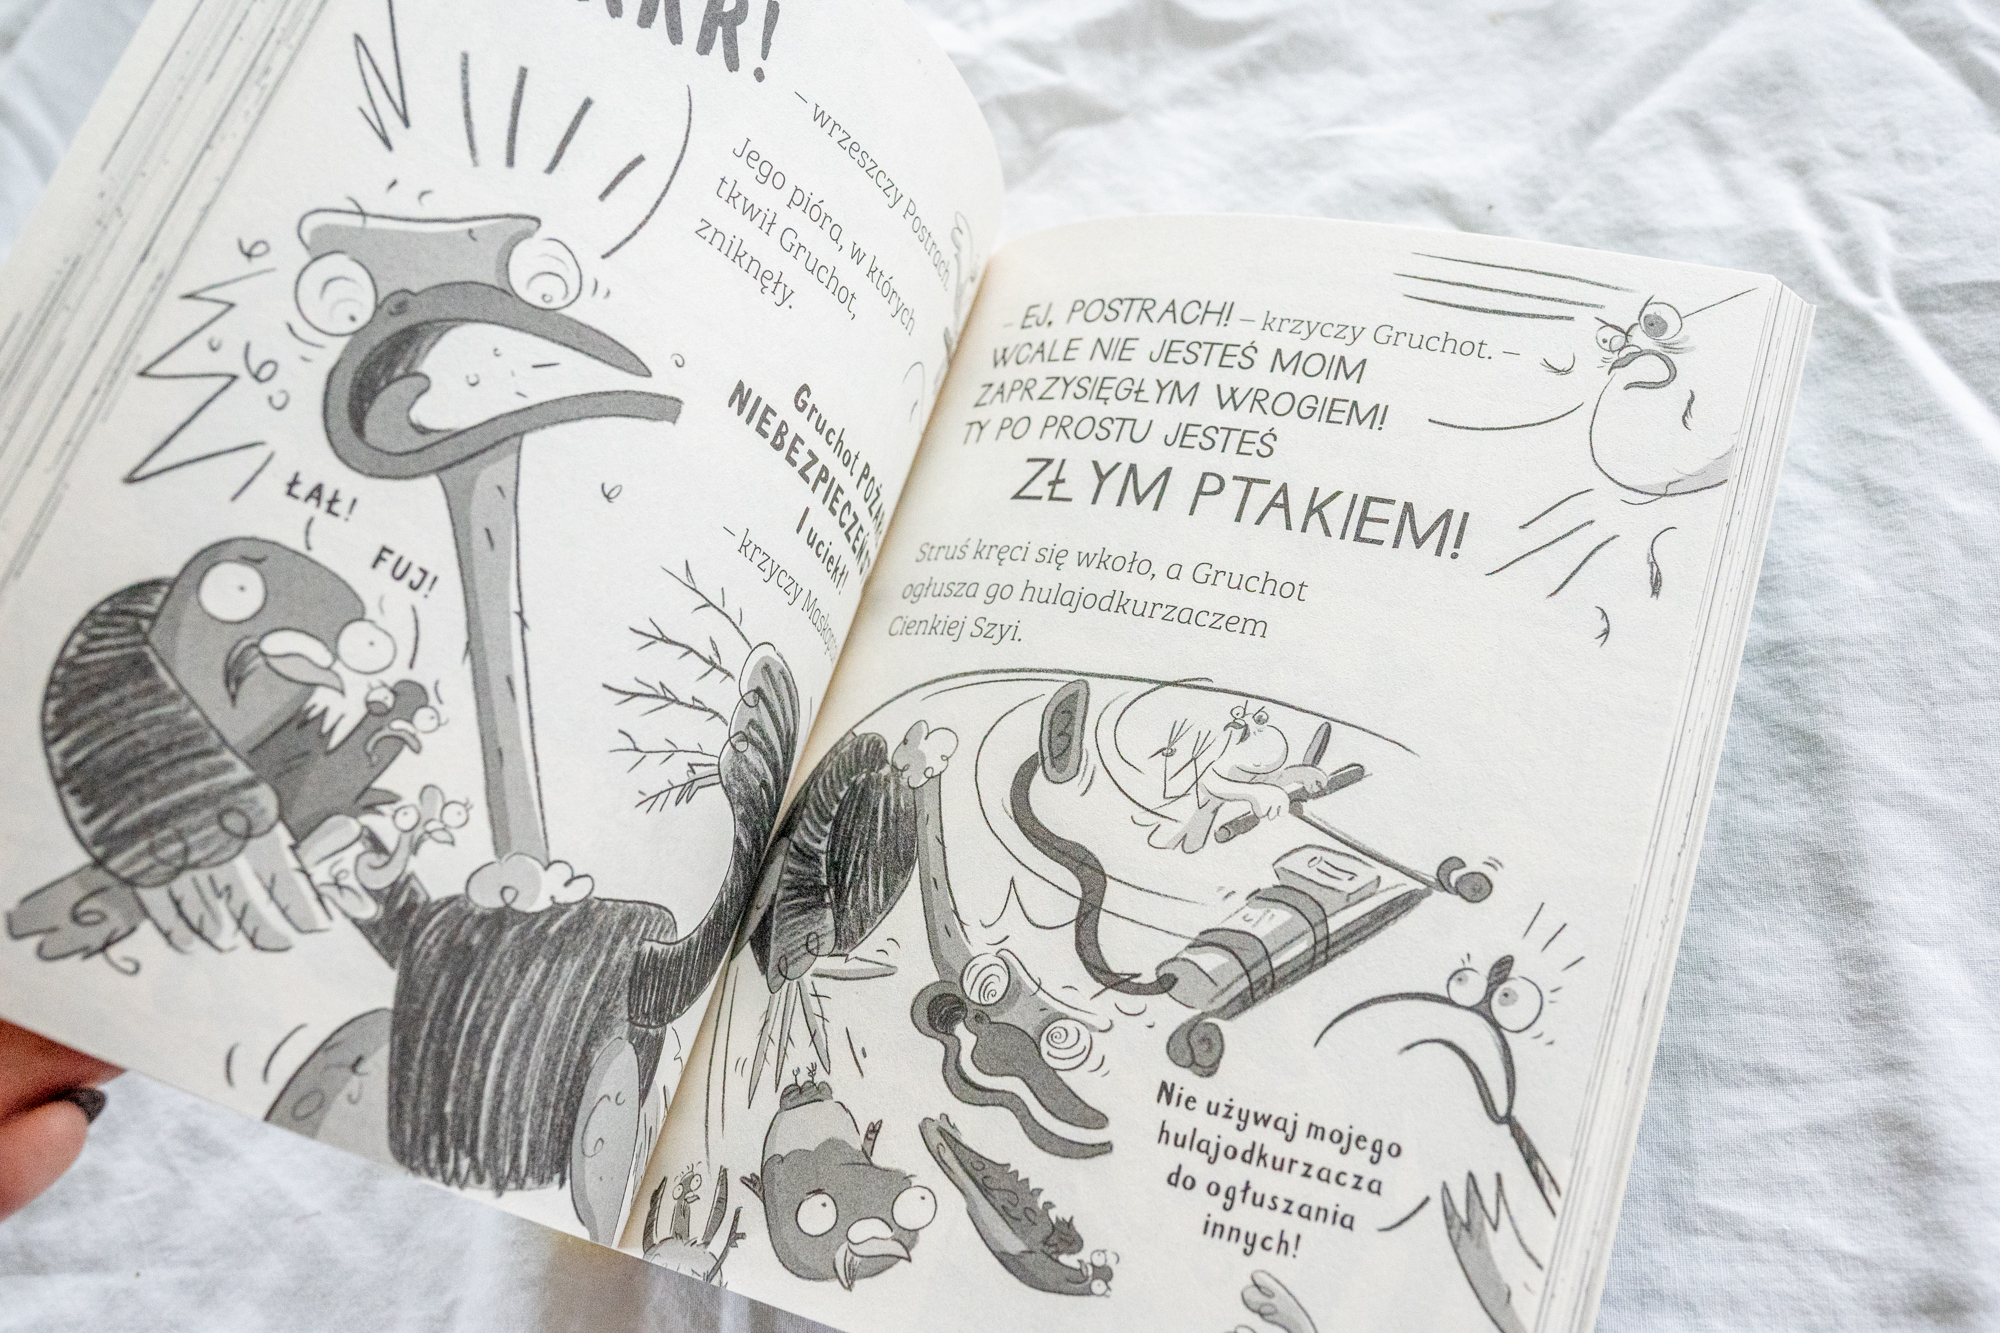 – wrzeszczy Postrach.
Jego pióra, w których
tkwił Gruchot,
zniknęły.
Gruchot
NIEBEZPIECZEŃ
I uciekł!
– krzyczy
ŁAŁ!
FUJ!
– EJ, POSTRACH! – krzyczy Gruchot. –
WCALE NIE JESTEŚ MOIM
ZAPRZYSIĘGŁYM WROGIEM!
TY PO PROSTU JESTEŚ
ZŁYM PTAKIEM!
Struś kręci się wkoło, a Gruchot
ogłusza go hulajodkurzaczem
Cienkiej Szyi.
Nie używaj mojego
hulajodkurzacza
do ogłuszania
innych!